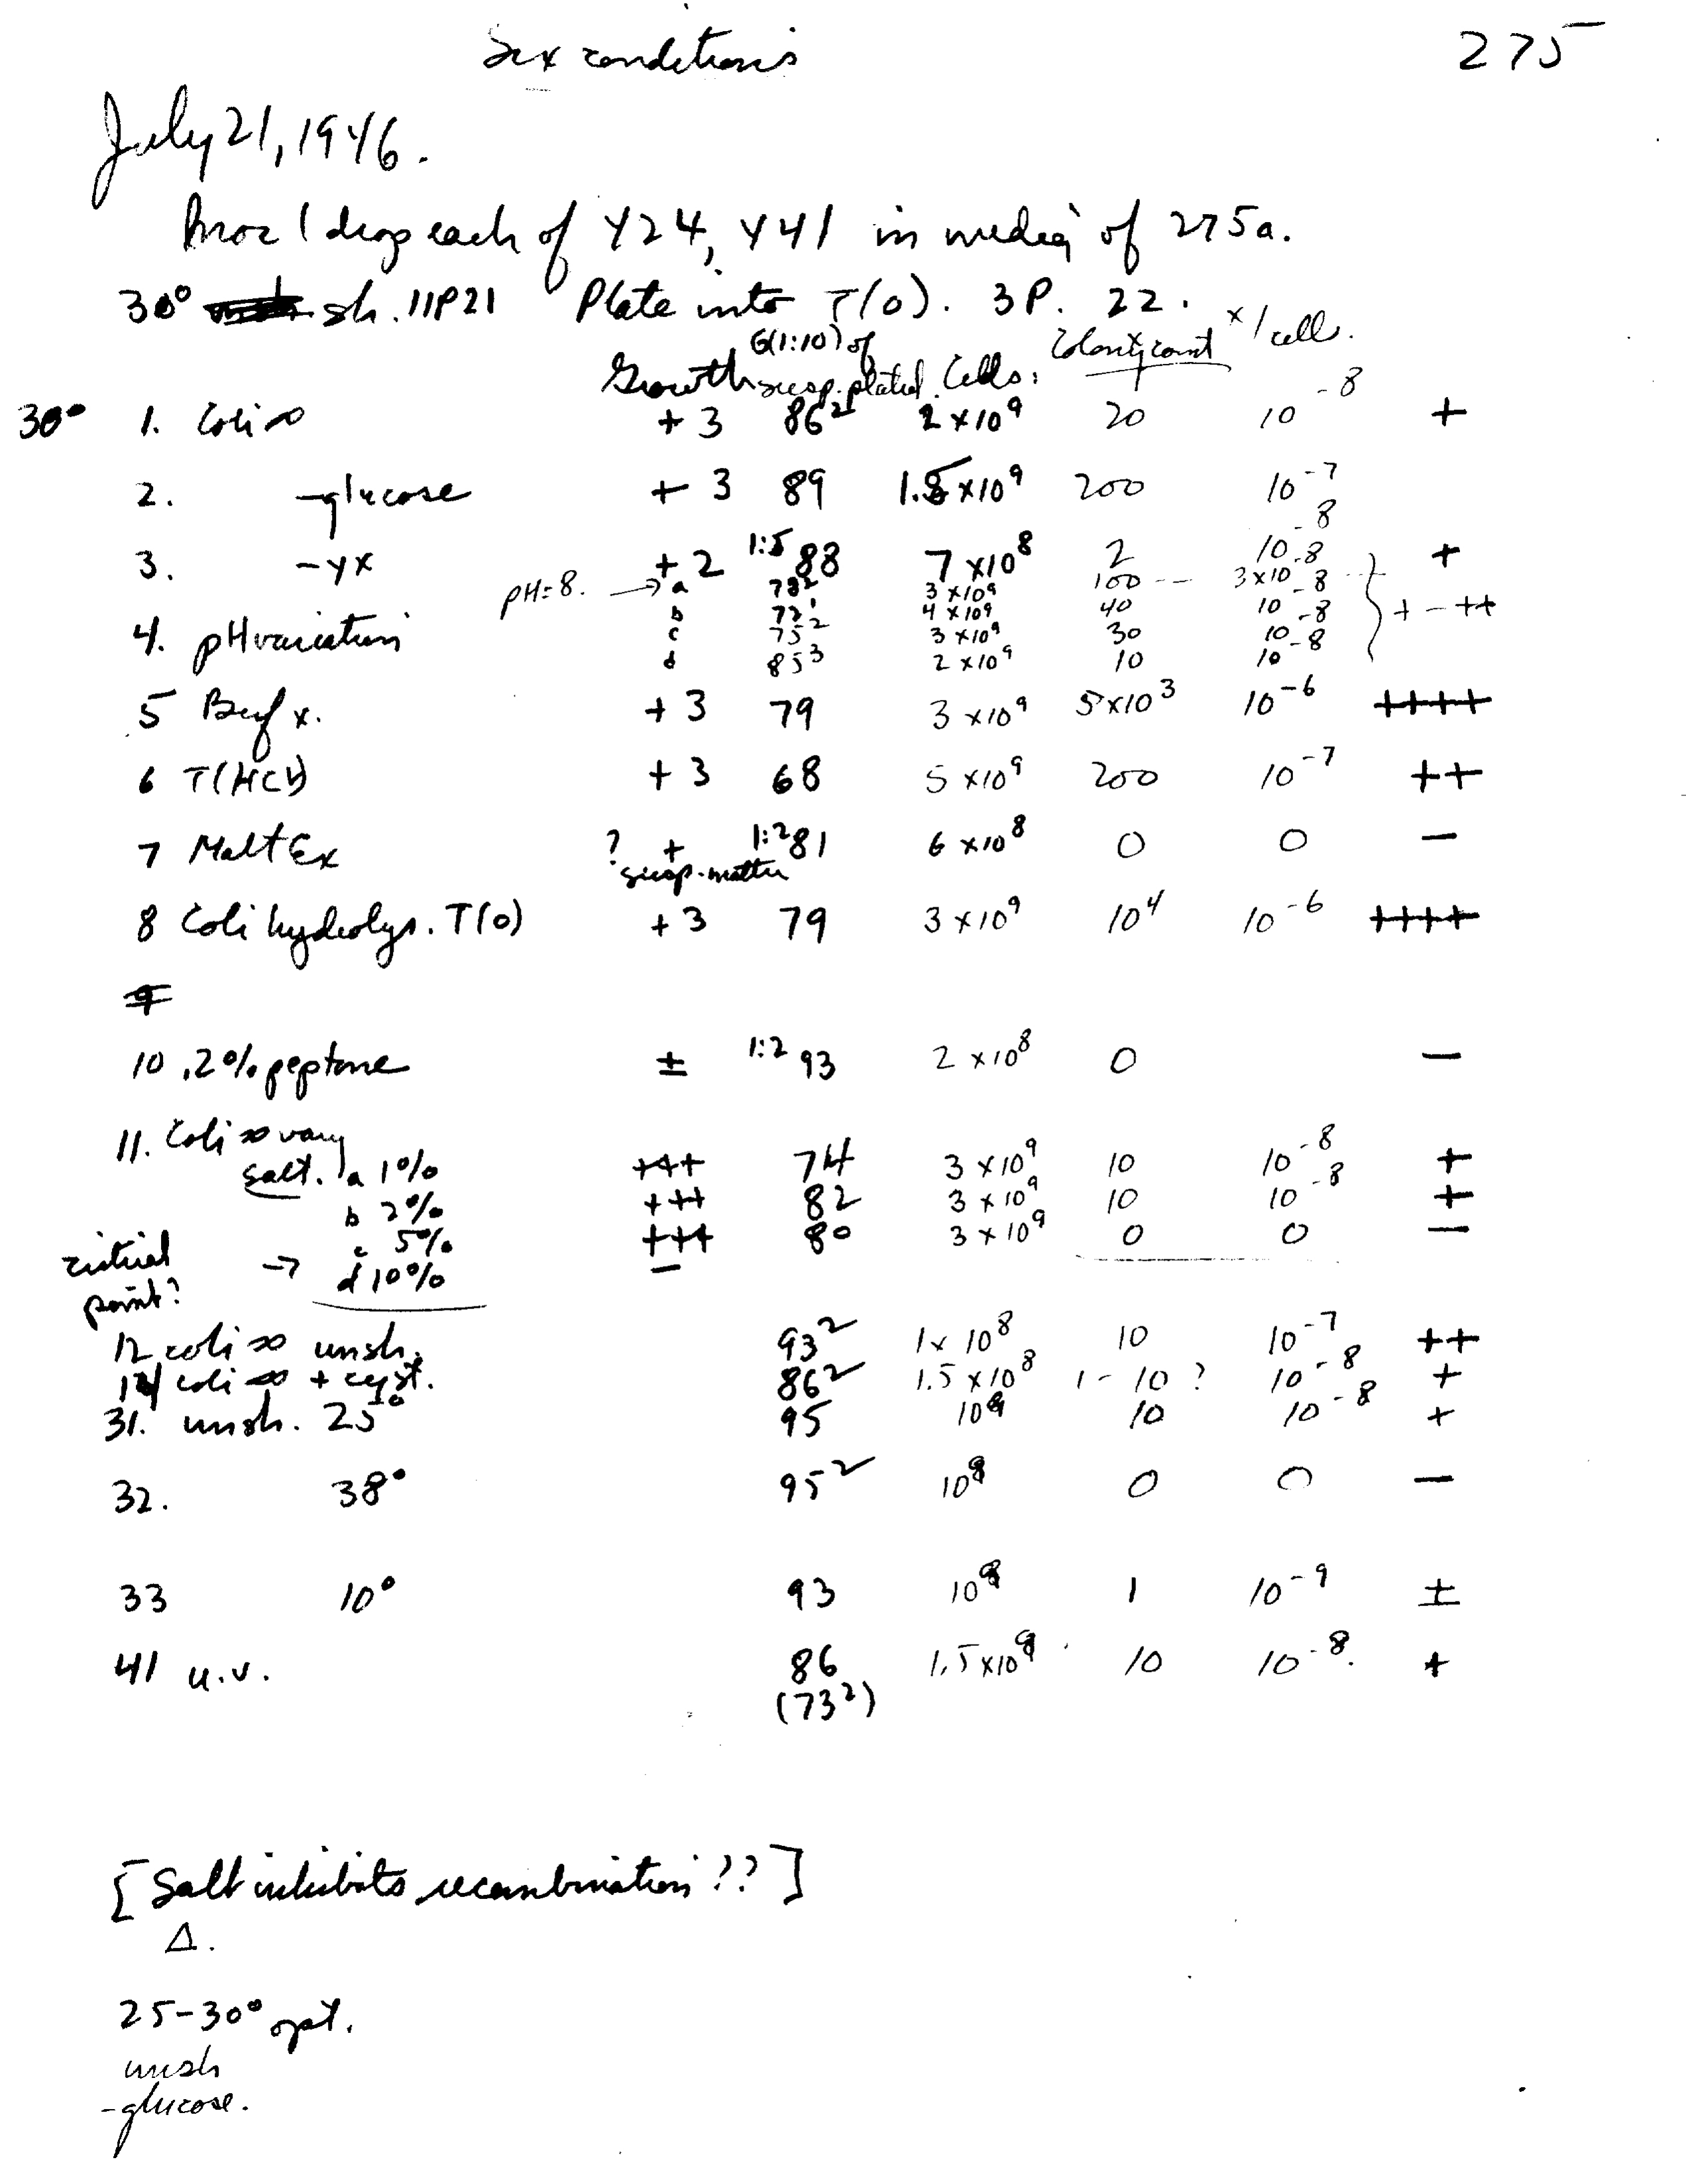 Sex conditions 275
July 21, 1946.
Inoc 1 drop each of Y24, Y41 in media of 275a.
30° sh. 11P21 Plate into T(0). 3P. 22.
Growth G(1:10) of susp. plated. Cells. Colony count x/cell.
30° 1. Coli ∞ +3 86² 2 x10⁹ 20 10⁻⁸ +
2. -glucose +3 89 1.5 x10⁹ 200 10⁻⁷
3. -yx +2 1:5 88 7 x10⁸ 2 10⁻⁸ +
pH=8. → a 78² 3 x10⁹ 100 -- 3x10⁻⁸
b 72¹ 4 x10⁹ 40 10⁻⁸ + - ++
4. pH variation c 75² 3 x10⁹ 30 10⁻⁸
d 85³ 2 x10⁹ 10 10⁻⁸
5 Beef x. +3 79 3 x10⁹ 5x10³ 10⁻⁶ ++++
6 T(HCl) +3 68 5 x10⁹ 200 10⁻⁷ ++
7 Malt Ex ? + 1:2 81 6 x10⁸ 0 0 -
susp. matter
8 Coli hydrolys. T(0) +3 79 3 x10⁹ 10⁴ 10⁻⁶ ++++
9
10 .2% peptone ± 1:2 93 2 x10⁸ 0 -
11. Coli ∞ vary
salt. a 1% +++ 74 3 x10⁹ 10 10⁻⁸ +
b 2% +++ 82 3 x10⁹ 10 10⁻⁸ +
c 5% +++ 80 3 x10⁹ 0 0 -
critical point? → d 10% -
12 coli ∞ unsh. 93² 1x 10⁸ 10 10⁻⁷ ++
14 coli ∞ + cyst. 86² 1.5 x10⁸ 1-10 ? 10⁻⁸ +
31. unsh. 25° 95 10⁹ 10 10⁻⁸ +
32. 38° 95² 10⁹ 0 0 -
33 10° 93 10⁹ 1 10⁻⁹ ±
41 u.v. 86 1.5 x10⁹ 10 10⁻⁸. +
(73²)
[Salt inhibits recombination??]
Δ.
25-30° opt.
unsh
-glucose.